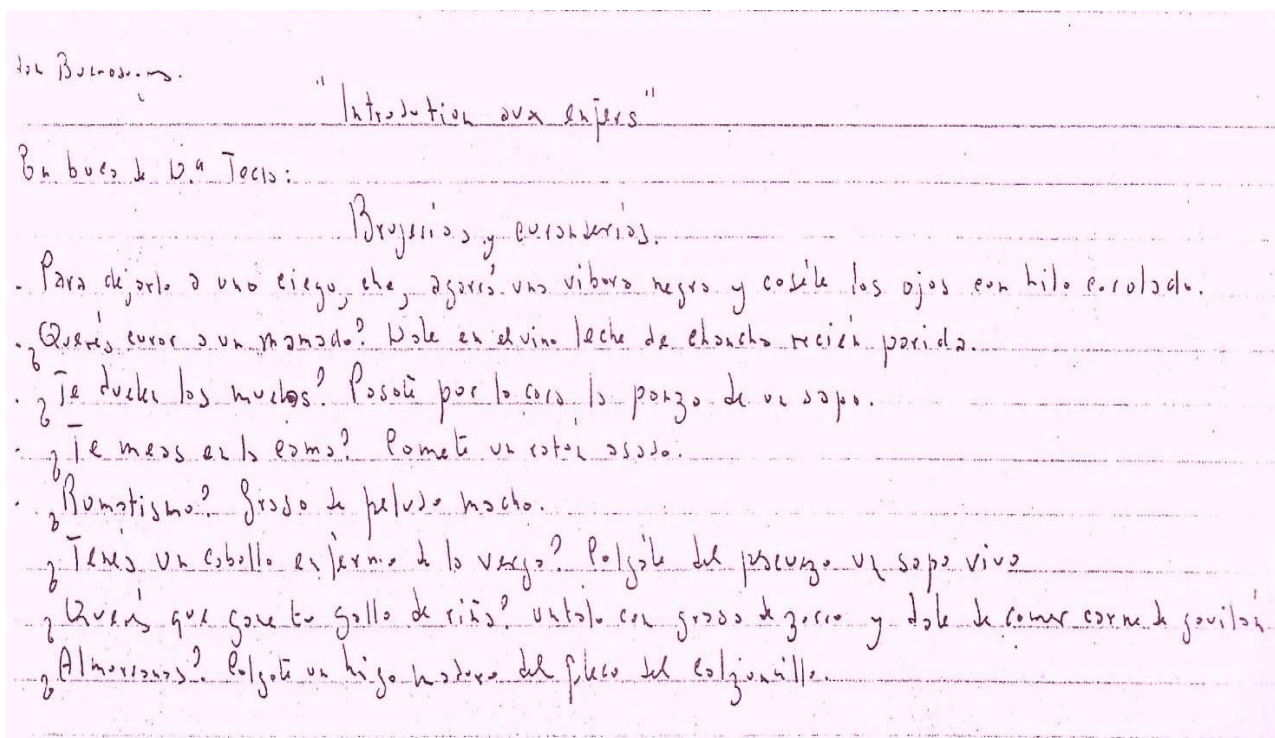 don Buenosayres.
"Introdution aux enfers"
En boca de D.ª Tecla:
Brujerías y curanderías.
- Para dejarlo a uno ciego, che, agarrá una vibora negra y coséle los ojos con hilo colorado.
- ¿Querés curar a un mamado? Dale en el vino leche de chancha recién parida.
- ¿Te duelen las muelas? Pasate por la cara la panza de un sapo.
- ¿Te meas en la cama? Comete un ratón asado.
- ¿Rumatismo? Grasa de peludo macho.
¿Tenés un caballo enfermo de la verga? Colgále del pescuezo un sapo vivo
¿Querés que gane tu gallo de riña? untalo con grasa de zorro y dale de comer carne de gavilán
¿Almorranas? Colgate un higo maduro del fleco del calzoncillo.